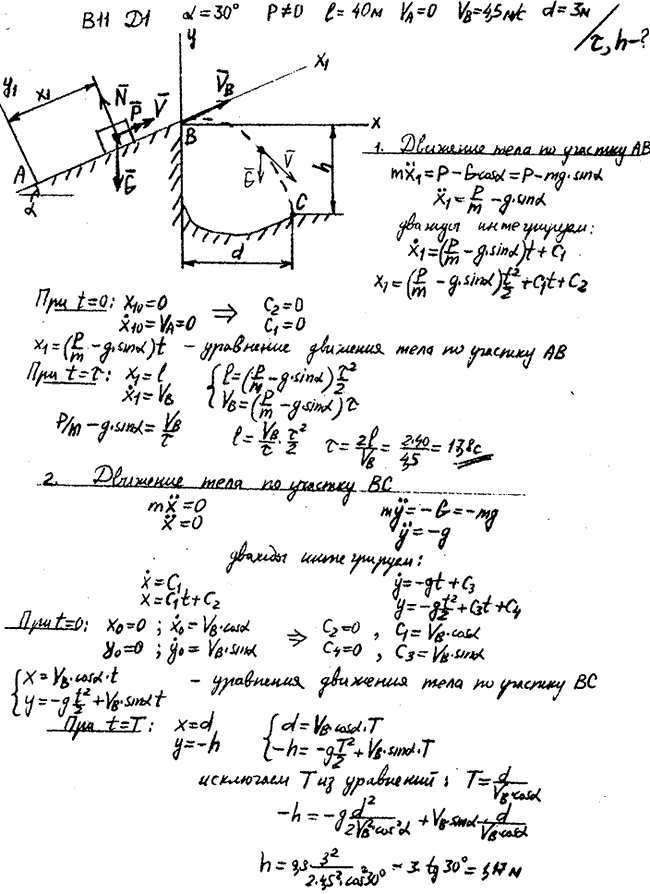 В11 Д1 α=30° P≠0 l=40м V_A=0 V_B=4,5 м/с d=3м
τ, h-?
y
x₁
y₁
x₁
N̄
P̄
V̄
V̄_B
A
α
Ḡ
B
x
Ḡ
V̄
h
C
d
1. Движение тела по участку AB
mẍ₁=P-G·cosα=P-mg·sinα
ẍ₁=P/m-g·sinα
дважды интегрируем:
ẋ₁=(P/m-g·sinα)t+C₁
x₁=(P/m-g·sinα)t²/2+C₁t+C₂
При t=0: x₁₀=0 ⇒ C₂=0
ẋ₁₀=V_A=0 C₁=0
x₁=(P/m-g·sinα)t - уравнение движения тела по участку AB
При t=τ: x₁=l { l=(P/m-g·sinα)τ²/2
ẋ₁=V_B V_B=(P/m-g·sinα)τ
P/m-g·sinα=V_B/τ l=V_B/τ·τ²/2 τ=2l/V_B=2·40/4,5=17,8с
2. Движение тела по участку BC
mẍ=0 mÿ=-G=-mg
ẍ=0 ÿ=-g
дважды интегрируем:
ẋ=C₁ ẏ=-gt+C₃
x=C₁t+C₂ y=-gt²/2+C₃t+C₄
При t=0: x₀=0 ; ẋ₀=V_B·cosα ⇒ C₂=0 , C₁=V_B·cosα
y₀=0 ; ẏ₀=V_B·sinα C₄=0 , C₃=V_B·sinα
{ x=V_B·cosα·t - уравнения движения тела по участку BC
y=-gt²/2+V_B·sinα t
При t=T: x=d { d=V_B·cosα·T
y=-h -h=-gT²/2+V_B·sinα·T
исключаем T из уравнений: T=d/(V_B·cosα)
-h=-g d²/(2V_B²·cos²α)+V_B·sinα·d/(V_B·cosα)
h=9,8·3²/(2·4,5²·cos²30°)-3·tg30°=1,17м